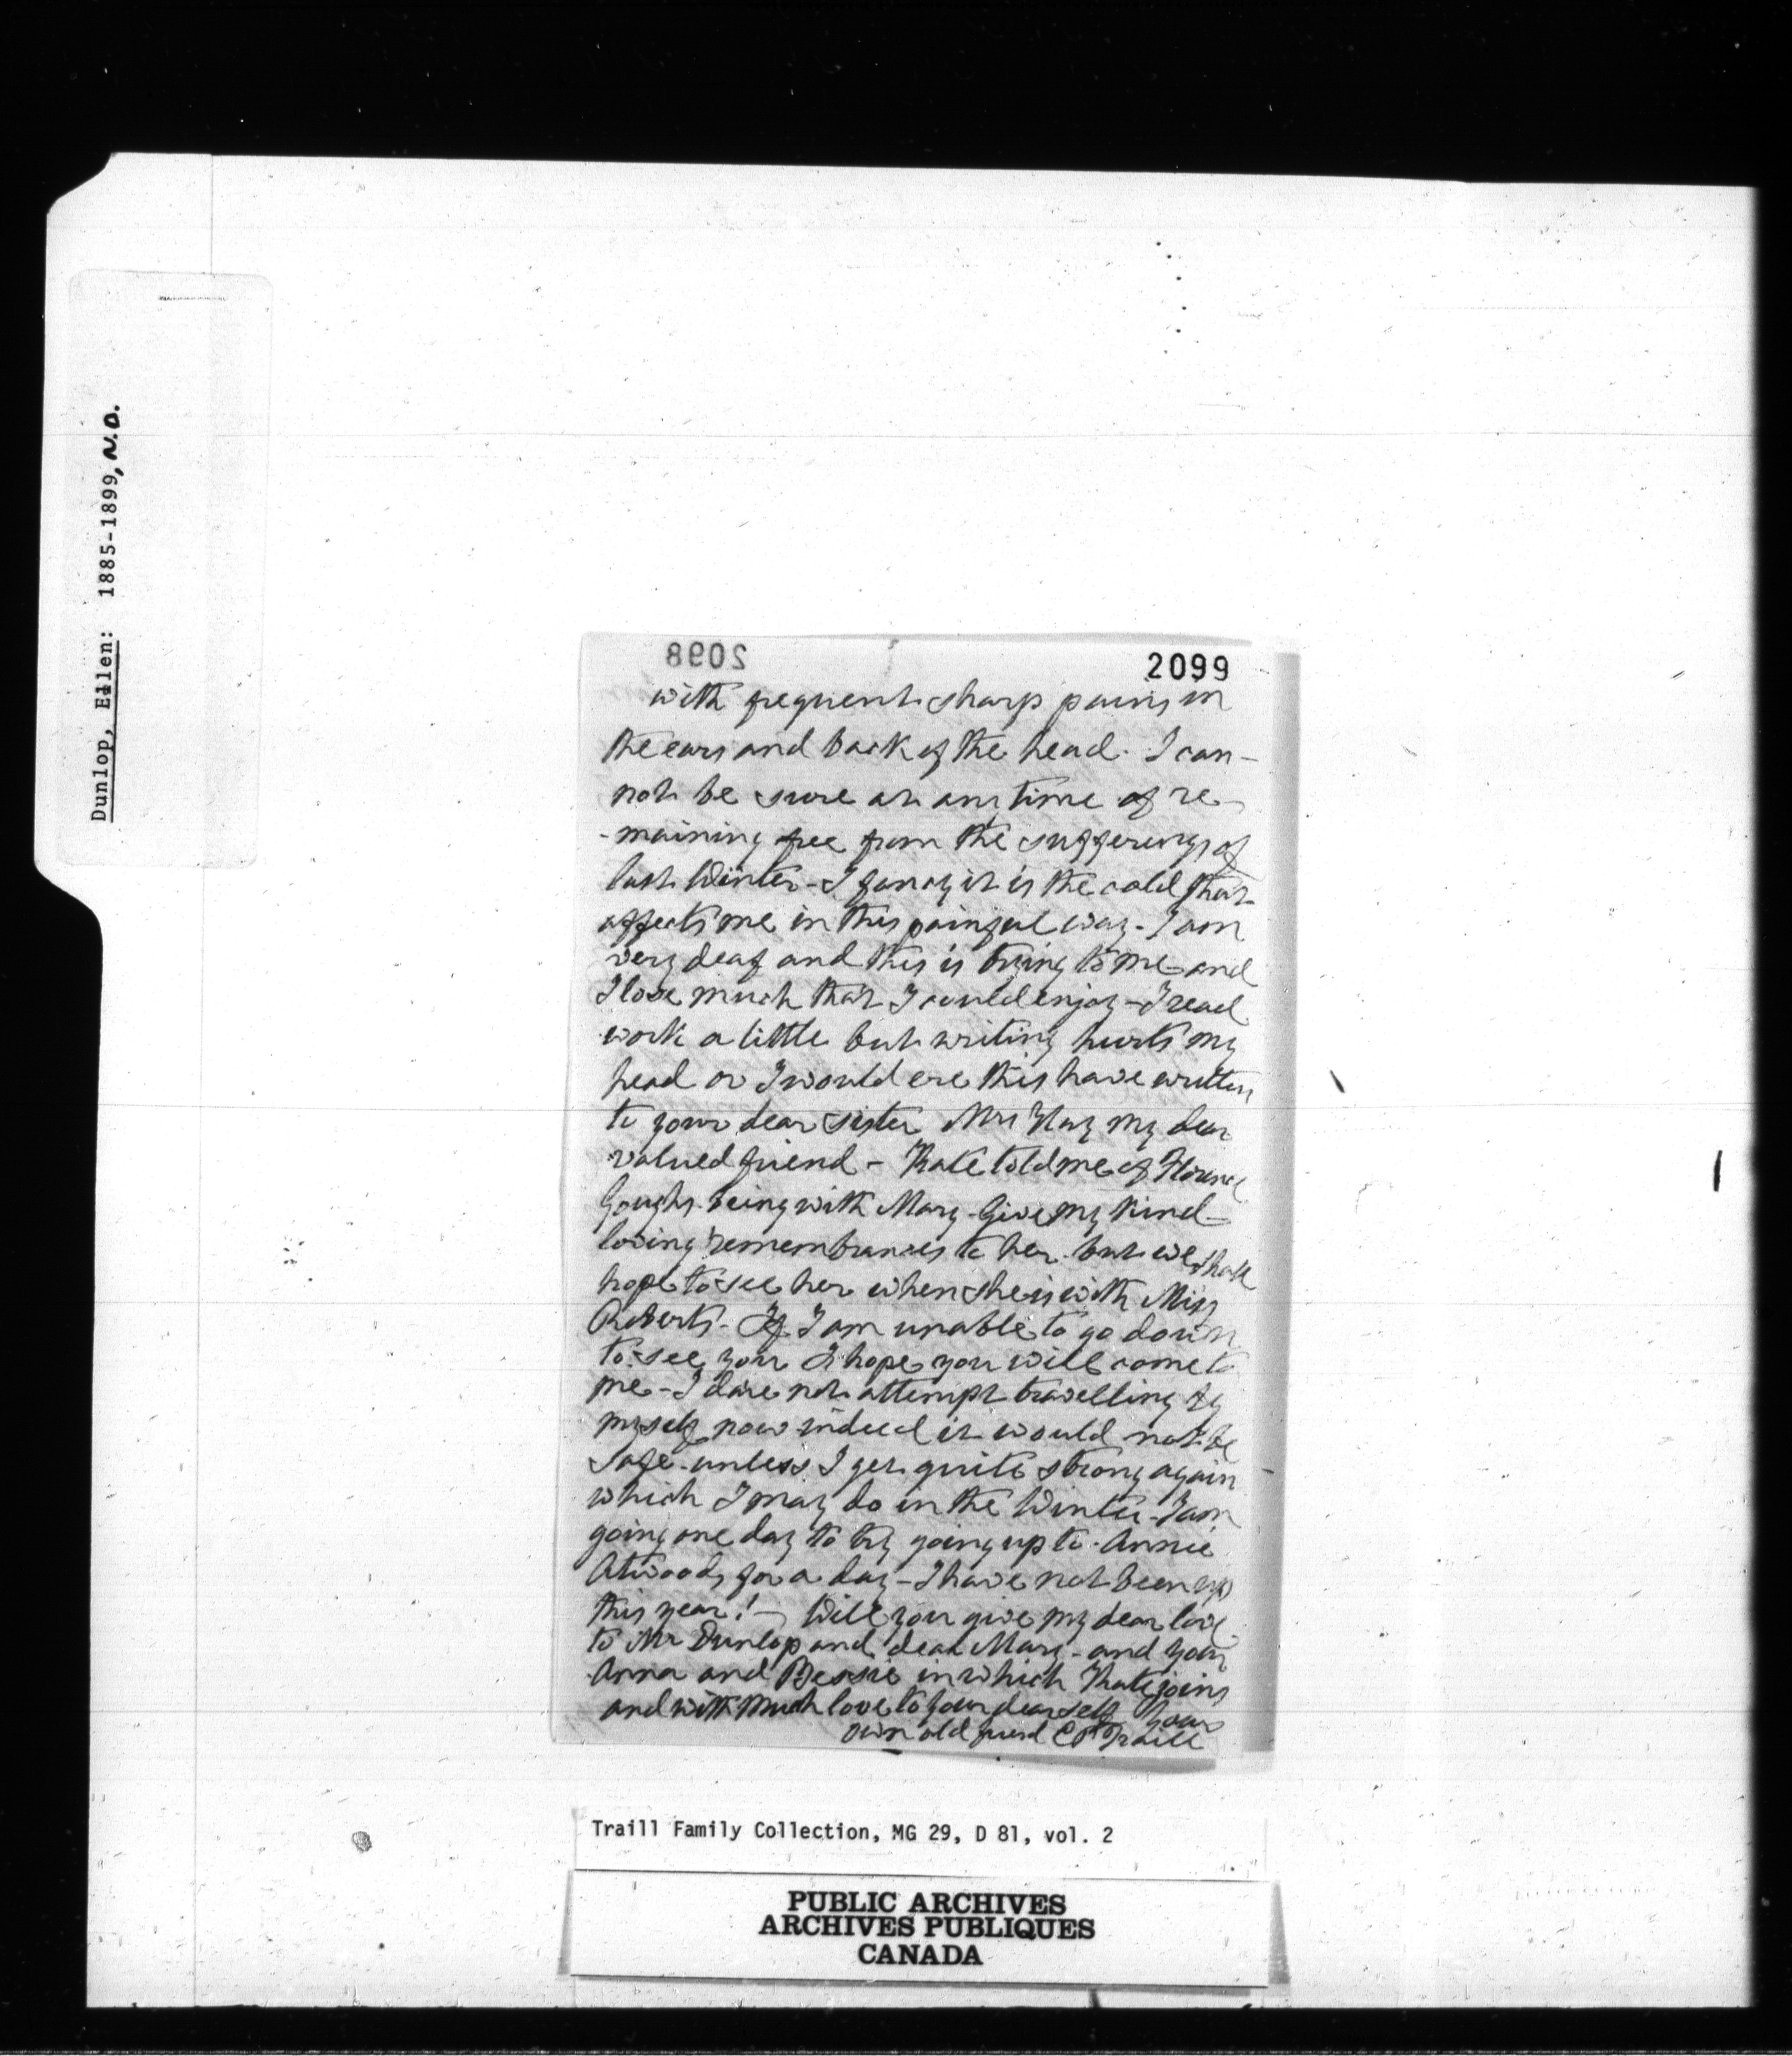 Dunlop, Ellen: 1885-1899, N.D.
2098
2099
with frequent sharp pains in
the ears and back of the head. I can-
not be sure at any time of re-
-maining free from the sufferings of
last Winter - I fancy it is the cold that
affects me in this painful way - I am
very deaf and this is trying to me and
I lose much that I could enjoy - I read
work a little but writing hurts my
head or I would ere this have written
to your dear sister Mrs Hay my dear
valued friend - Kate told me of Florence
Goughs being with Mary - Give my kind
loving remembrances to her but we shall
hope to see her when she is with Miss
Roberts - If I am unable to go down
to see you I hope you will come to
me - I dare not attempt travelling by
myself now indeed it would not be
safe unless I get quite strong again
which I may do in the Winter - I am
going one day to try going up to Annie
Atwoods for a day - I have not been up
this year! - Will you give my dear love
to Mr Dunlop and dear Mary - and your
Anna and Bessie in which Kate joins
and with much love to your dear self Your
own old friend C P Traill
Traill Family Collection, MG 29, D 81, vol. 2
PUBLIC ARCHIVES
ARCHIVES PUBLIQUES
CANADA